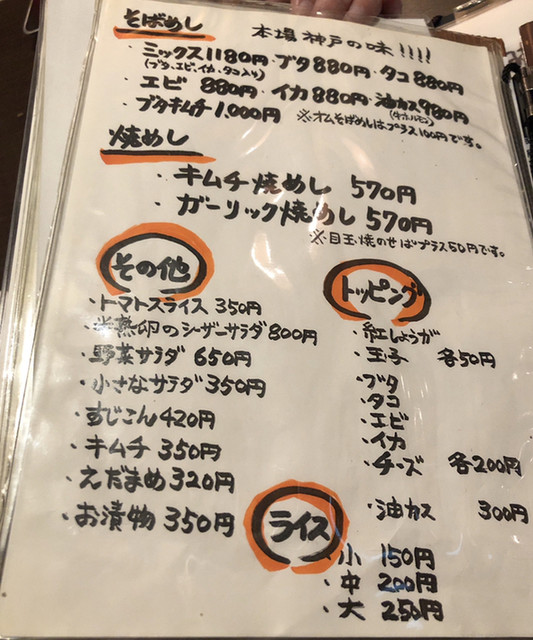 そばめし 本場神戸の味!!!!
・ミックス1180円・ブタ880円・タコ880円
(ブタ、エビ、イカ、タコ入り)
・エビ 880円・イカ880円・油カス980円
(牛ホルモン)
・ブタキムチ1,000円 ※オムそばめしは、プラス100円です。
焼めし
・キムチ焼めし 570円
・ガーリック焼めし570円
※目玉焼のせはプラス50円です。
その他
・トマトスライス 350円
・半熟卵のシーザーサラダ800円
・野菜サラダ 650円
・小さなサラダ350円
・すじこん420円
・キムチ 350円
・えだまめ320円
・お漬物 350円
トッピング
・紅しょうが
・玉子 各50円
・ブタ
・タコ
・エビ
・イカ
・チーズ 各200円
・油カス 300円
ライス
・小 150円
・中 200円
・大 250円